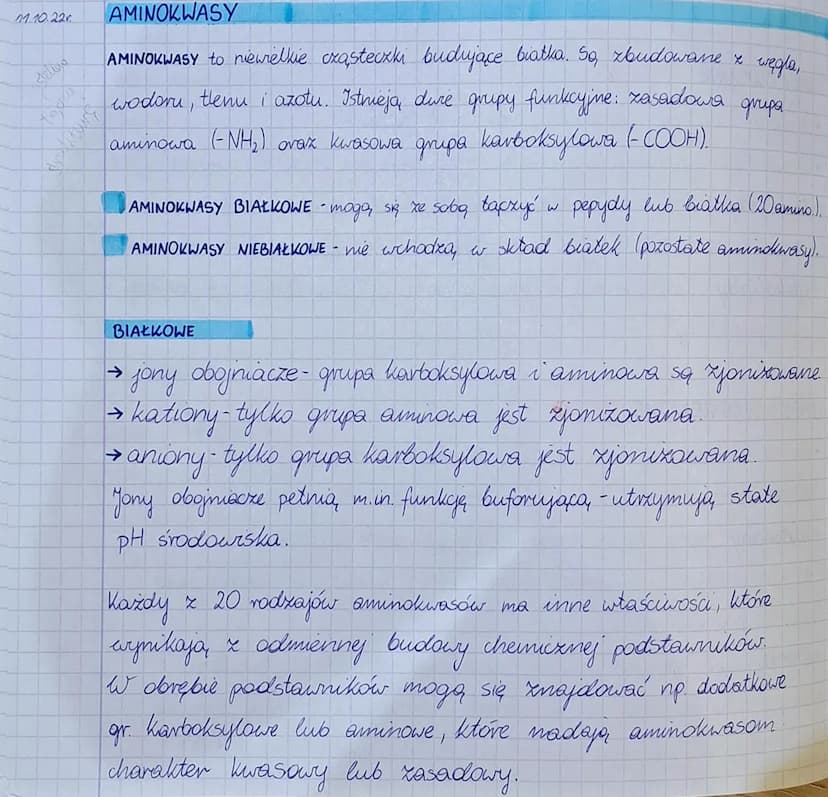 11.10.22r.
AMINOKWASY
AMINOKWASY to niewielkie cząsteczki budujące białka. Są zbudowane z węgla,
wodoru, tlenu i azotu. Istnieją dwie grupy funkcyjne: zasadowa grupa
aminowa (-NH₂) oraz kwasowa grupa karboksylowa (-COOH).
AMINOKWASY BIAŁKOWE - mogą się ze sobą łączyć w pepydy lub białka (20 amino.).
AMINOKWASY NIEBIAŁKOWE - nie wchodzą w skład białek (pozostałe aminokwasy).
BIAŁKOWE
→ jony obojniacze - grupa karboksylowa i aminowa są zjonizowane
→ kationy - tylko grupa aminowa jest zjonizowana.
→ aniony - tylko grupa karboksylowa jest zjonizowana.
Jony obojniacze pełnią m.in. funkcję buforującą - utrzymują stałe
pH środowiska.
Każdy z 20 rodzajów aminokwasów ma inne właściwości, które
wynikają z odmiennej budowy chemicznej podstawników.
W obrębie podstawników mogą się znajdować np. dodatkowe
gr. karboksylowe lub aminowe, które nadają aminokwasom
charakter kwasowy lub zasadowy.